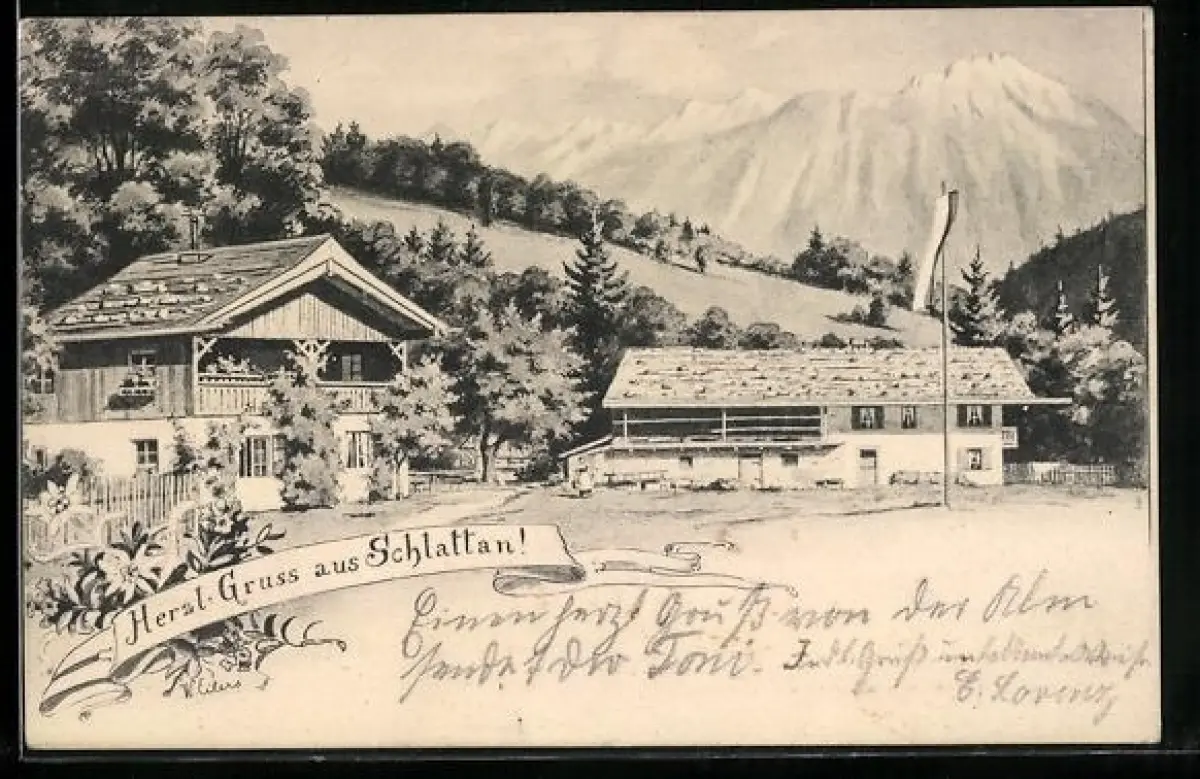 Herzl. Gruss aus Schlattan!
Einen herzl Gruß von der Alm
sendet dir Toni. Gruß
E. Lorenz